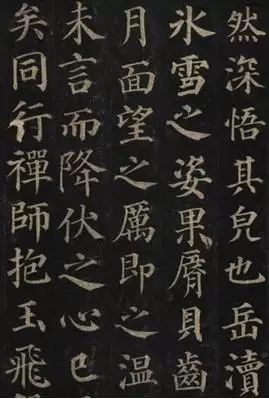 然深悟其皃也岳瀆
氷雪之姿果脣貝齒
月面望之厲即之温
未言而降伏之心已
矣同行禪師抱玉飛